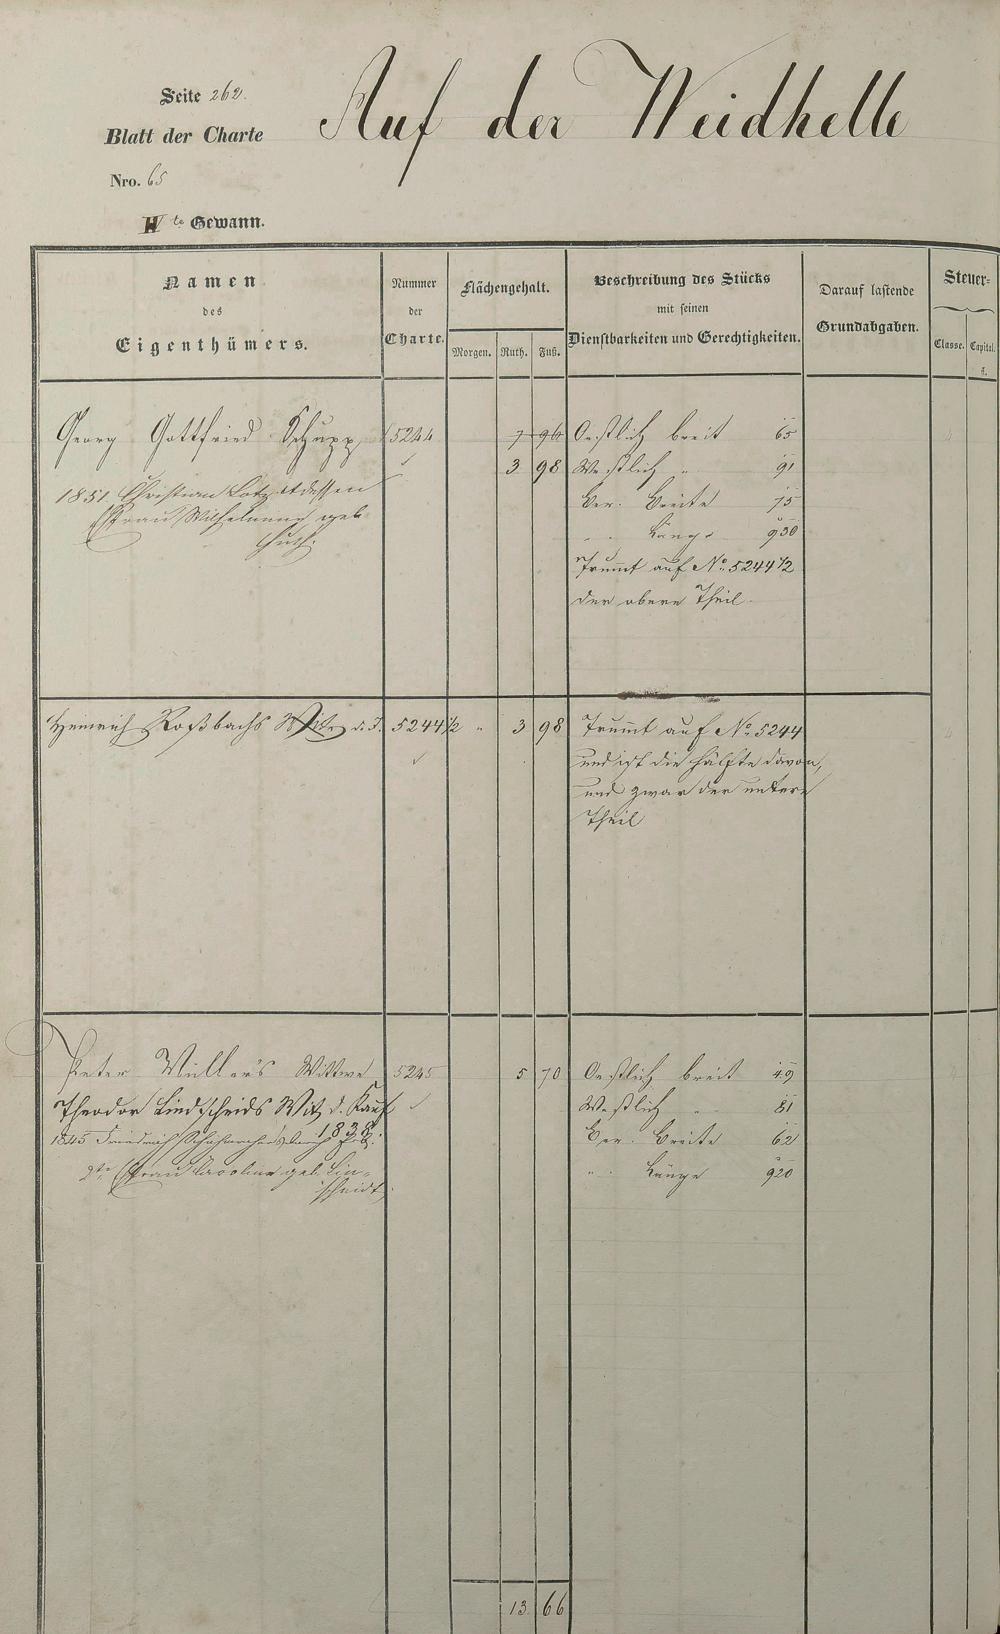 Seite 262.
Auf der Weidhelle
Blatt der Charte
Nro. 65
te Gewann.
Namen
des
Eigenthümers.
Nummer
der
Charte.
Flächengehalt.
Morgen. Ruth. Fuß.
Beschreibung des Stücks
mit seinen
Dienstbarkeiten und Gerechtigkeiten.
Darauf lastende
Grundabgaben.
Steuer-
Classe. Capital.
fl.
Georg Gottfried Schupp 5244 7 96 Oestlich breit 65
3 98 Westlich " 91
1851 Christian Lotz dessen
Ber. Breite 75
Frau Wilhelmine geb.
" Länge 930
Guth.
Trumt auf No. 5244 1/2
der obere Theil.
Heinrich Roßbachs Wtb. d. J. 5244 1/2 " 3 98 Trumt auf No. 5244
und ist die Hälfte davon,
und zwar der untere
Theil
Peter Müller's Wittwe 5245 5 70 Oestlich breit 49
Theodor Lindscheids Wtb. d. Kauf
Westlich " 81
1838.
1845 Friedrich
Ber. Breite 62
2te Frau Caroline geb. Lin-
" Länge 920
scheidt.
13 66